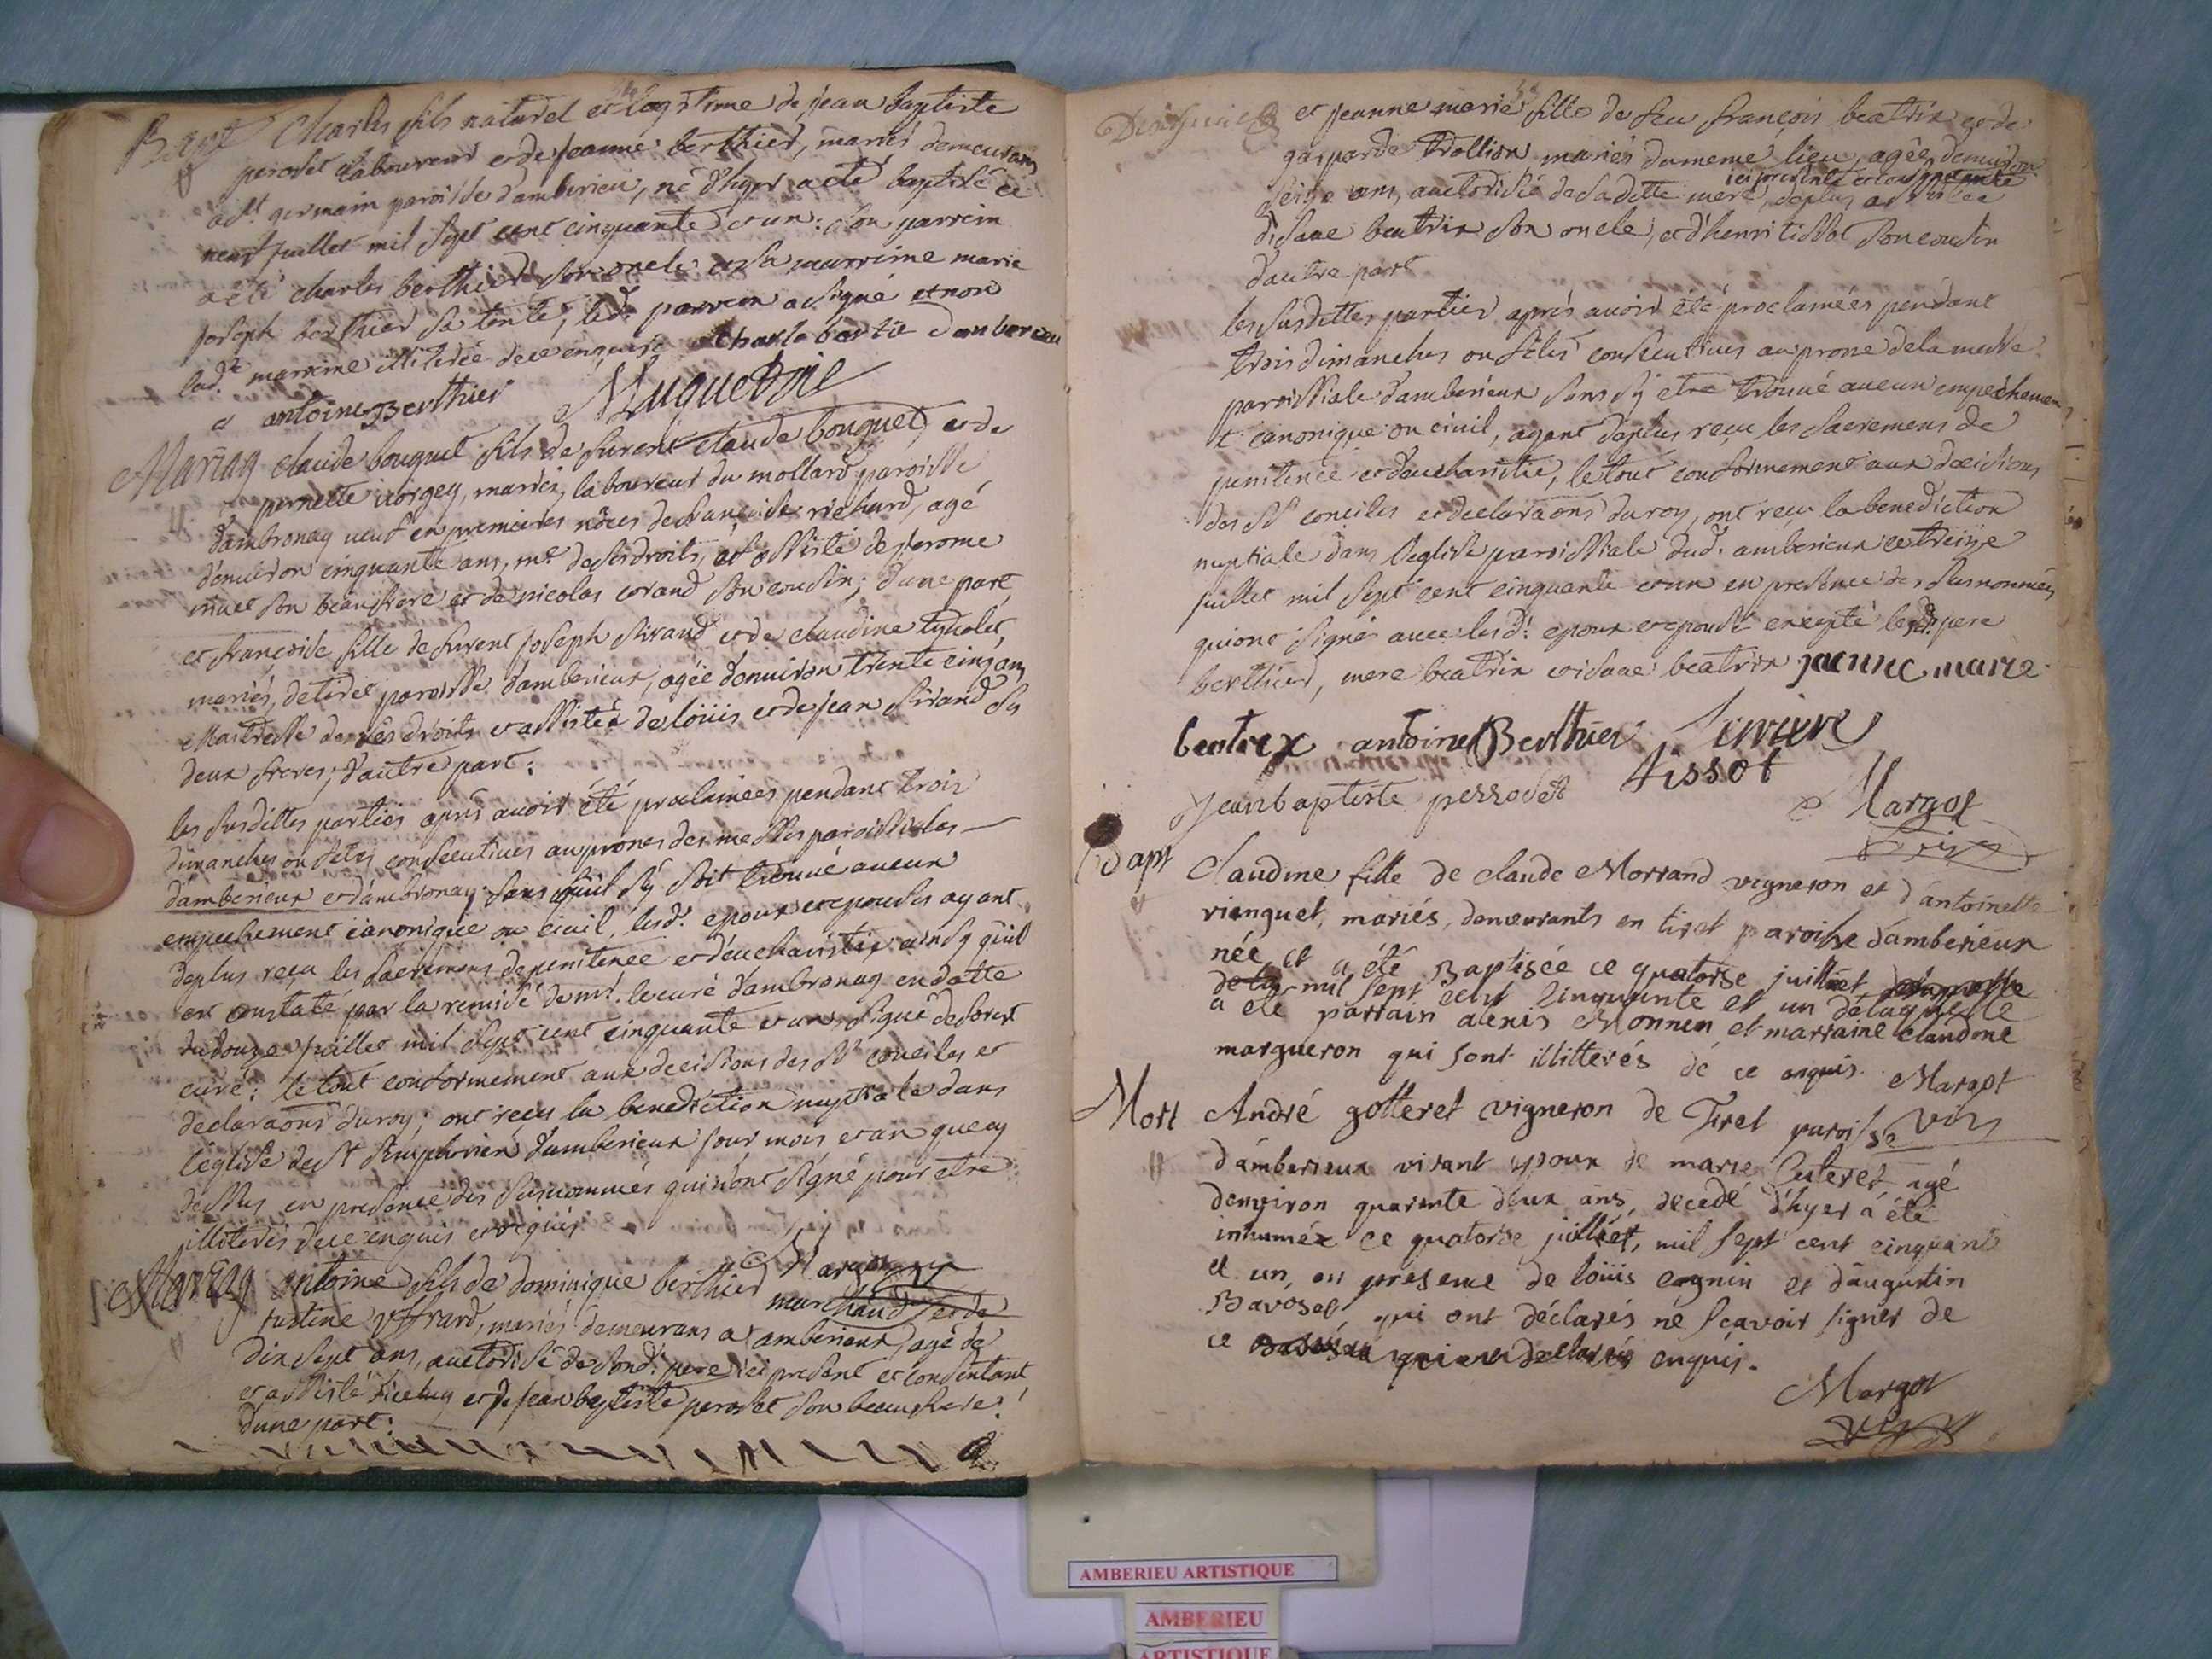 Bapt Charles fils naturel et legitime de jean baptiste
perodet laboureur et de jeanne berthier, mariés demeurans
a st germain paroisse d'amberieu, né d'hyer a eté baptisé ce
neuf juillet mil sept cent cinquante et un: son parrein
a eté charles berthier son oncle et sa marreine marie
joseph berthier sa tente, led. parrein a signé et non
lad.e marreine illiterée de ce enquise Charle bertie d'ambereieu
antoine Berthier Huguet
Mariag claude bouquet fils de furent claude bouquet, et de
pernette mariés, laboureur du mollard paroisse
d'ambronay veuf en premieres nôces de françoise richard, agé
d'environ cinquante ans, me. de ses droits, et assisté de jerome
son beaufrere et de nicolas corand son cousin; d'une part
et françoise fille de furent joseph sirand et de claudine
mariés, de tiret paroisse d'amberieux, agée d'environ trente cinq ans
Maitresse de ses droits et assistée de loüis et de jean sirand ses
deux freres; d'autre part:
les susdittes parties aprés avoir été proclamées pendant trois
dimanches ou fetes consecutives au prones des messes paroissiales
d'amberieux et d'ambronay sans qu'il s'y soit trouvé aucun
empechement canonique ou civil, lesd. epoux et epouse ayant
deplus reçu les sacremens de penitence et d'eucharistie ainsy qu'il
est constaté par la remise de mr. le curé d'ambronay en datte
du douze juillet mil sept cent cinquante et un signé deforest
curé: le tout conformement aux decisions des sts conciles et
declaraons du roy; ont reçu la benediction nuptiale dans
l'eglise de st simphorien d'amberieux jour mois et an que cy
dessus en presence des susnommés qui n'ont signé pour etre
illiterés de ce enquis et requis
Margot
Mariag antoine fils de dominique berthier marchand et de
justine mariés demeurans a amberieux, agé de
dix sept ans, auctorisé de sond. pere ici present et consentant
et assisté d'iceluy et de jean baptiste perodet son beaufrere
d'une part:
et jeanne marie fille de feu françois beatrix et de
gasparde trollion mariés du meme lieu, agée d'environ
seize ans, auctorisée de sa ditte mere, ici presente et consentante deplus assistée
d'isaac beatrix son oncle, et d'henri tissot son cousin
d'autre part
les susdittes parties aprés avoir été proclamées pendant
trois dimanches ou fetes consecutives au prone de la messe
paroissiale d'amberieux sans s'y etre trouvé aucun empechemen
t canonique ou civil, ayant deplus reçu les sacremens de
penitence et d'eucharistie, le tout conformement aux decisions
des sts conciles et declaraons du roy, ont reçu la benediction
nuptiale dans l'eglise paroissiale dud. amberieux ce treize
juillet mil sept cent cinquante et un en presence des susnommés
qui ont signé avec lesd. epoux et epouse excepté lesd. pere
berthier, mere beatrix et isaac beatrix jaenne marie
beatrix antoine Berthier
tissot
Jeanbaptiste perrodet
Margot
Bapt Claudine fille de claude Morrand vigneron et d'antoinette
rienguet, mariés, demeurants en tiret paroisse d'amberieux
née et a été Baptisée ce quatorse juilliet
mil sept cent cinquante et un de laquelle
a été parrain alexis Monnen et marraine claudine
margueron qui sont illitterés de ce enquis. Margot
Mort André gotteret vigneron de Tiret paroisse
d'amberieux vivant epoux de marie agé
denviron quarente deux ans, decedé d'hyer á été
inhuméz ce quatorse juilliet, mil sept cent cinquante
et un, en presence de loüis cognin et d'augustin
Bavoset, qui ont déclarés né scavoir signer de
ce enquis.
Margot
AMBERIEU ARTISTIQUE
AMBERIEU
ARTISTIQUE